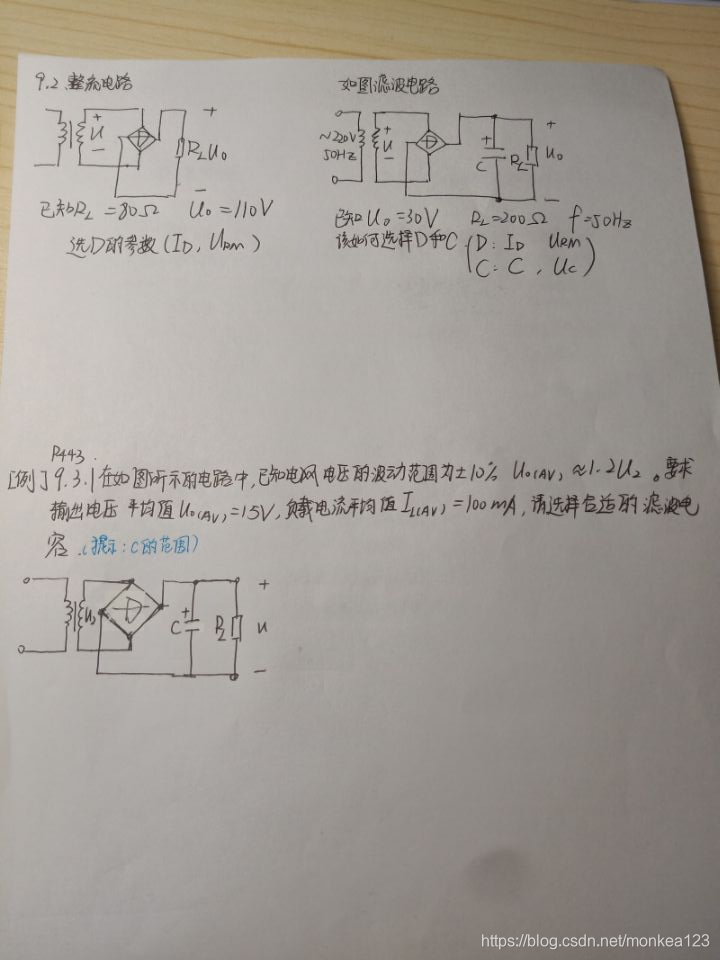 9.2 整流电路
U
+
-
RL
U0
+
-
已知RL=80Ω U0=110V
选D的参数(ID, URM)
如图滤波电路
~220V
50Hz
U
+
-
+
C
RL
U0
+
-
已知U0=30V RL=200Ω f=50Hz
该如何选择D和C (D: ID URM
C: C, UC)
P443.
[例]9.3.1 在如图所示的电路中,已知电网电压的波动范围为±10% UO(AV)≈1.2U2。要求
输出电压平均值UO(AV)=15V,负载电流平均值IL(AV)=100mA,请选择合适的滤波电
容.(提示:C的范围)
U2
D
+
C
RL
+
u
-
https://blog.csdn.net/monkea123